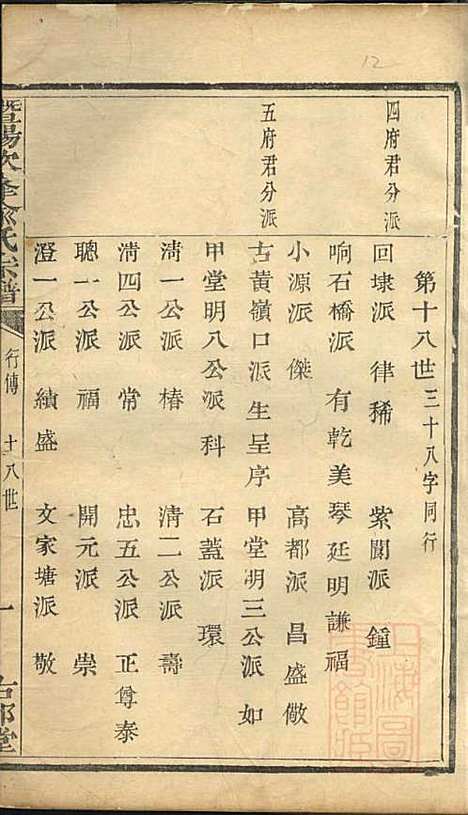 12
第十八世三十八字同行
四府君分派
回埭派 律稀 紫閬派 鍾
响石橋派 有乾美琴廷明謙福
小源派 傑 高都派 昌盛儆
五府君分派
古黃嶺口派生呈序 甲堂明三公派 如
甲堂明八公派科 石蓋派 環
清一公派 椿 清二公派 壽
清四公派 常 忠五公派 正尊泰
聰一公派 福 開元派 崇
澄一公派 績盛 文家塘派 敬
暨陽 氏宗譜
行傳 十八世 一
上海圖書館藏